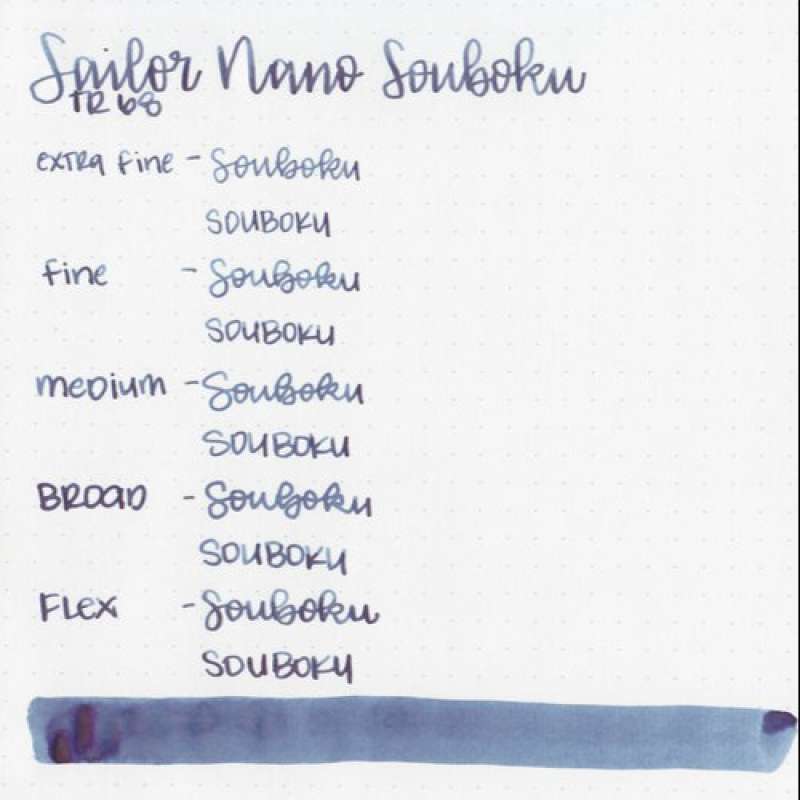 Sailor Nano Souboku
TR 68
extra fine - Souboku
SOUBOKU
fine - Souboku
SOUBOKU
medium - Souboku
SOUBOKU
BROAD - Souboku
SOUBOKU
FLEX - Souboku
SOUBOKU